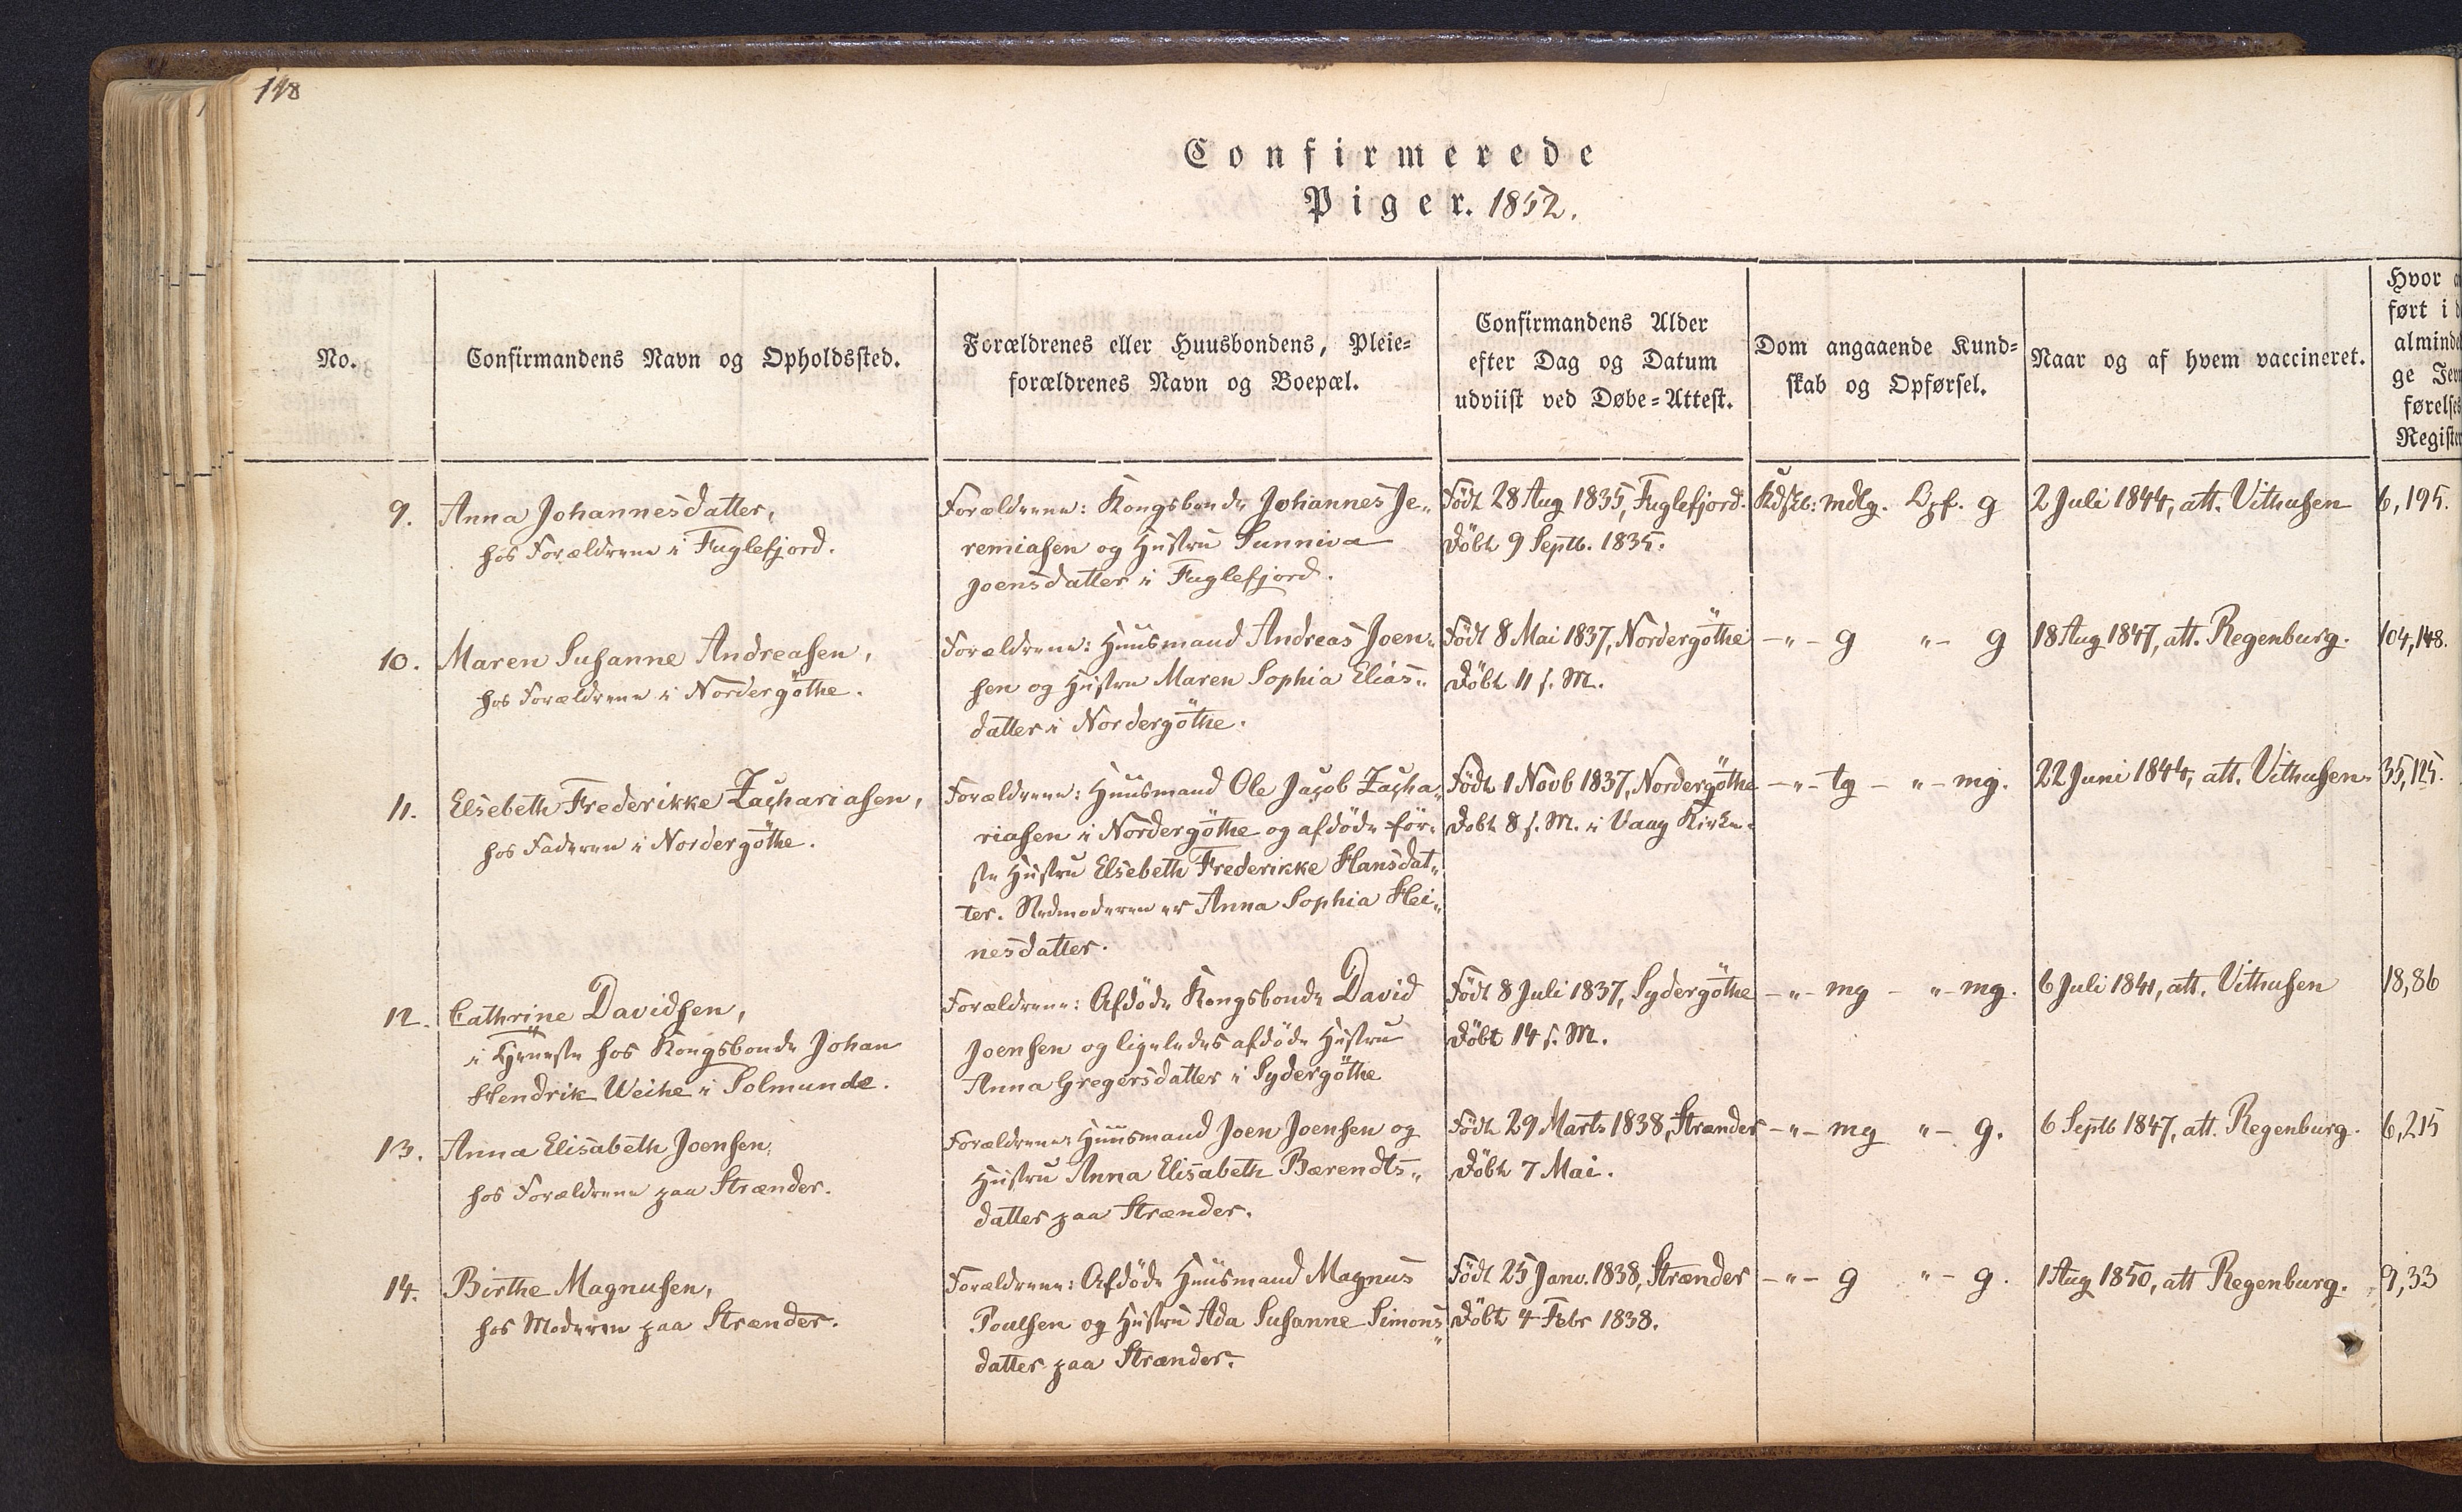 118
Confirmerede
Piger. 1852.
No.
Confirmandens Navn og Opholdssted.
Forældrenes eller Huusbondens, Pleie=
forældrenes Navn og Boepæl.
Confirmandens Alder
efter Dag og Datum
udviist ved Døbe=Attest.
Dom angaaende Kund=
skab og Opførsel.
Naar og af hvem vaccineret.
Hvor
ført i
alminde
ge
førelses
Register
9.
Anna Johannesdatter,
hos Forældrene i Fuglefjord.
Forældrene: Kongsbonde Johannes Je„
remiasen og Hustru Sunniva
Joensdatter i Fuglefjord.
Født 28 Aug 1835, Fuglefjord.
Døbt 9 Septb. 1835.
Kdskb: mdlg. Opf. g
2 Juli 1844, att. Vithusen
6, 195.
10.
Maren Susanne Andreasen,
hos Forældrene i Nordergöthe.
Forældrene: Huusmand Andreas Joen„
sen og Hustru Maren Sophia Elias„
datter i Nordergöthe.
Født 8 Mai 1837, Nordergöthe
Döbt 11 s. M.
-„- g „- g
18 Aug 1847, att. Regenburg.
104,148.
11.
Elsebeth Frederikke Zachariasen,
hos Faderen i Nordergöthe.
Forældrene: Huusmand Ole Jacob Zacha„
riasen i Nordergöthe og afdöde för„
ste Hustru Elsebeth Frederikke Hansdat„
ter. Stedmoderen er Anna Sophia Hei„
nesdatter.
Födt 1 Novb 1837, Nordergöthe
Dobt 8 s. M. i Vaag Kirke.
-„- tg - „- mg.
22 Juni 1844, att. Vithusen.
35,125.
12.
Cathrine Davidsen,
i Tjeneste hos Kongsbonde Johan
Hendrik Weihe i Solmunde.
Forældrene: Afdöde Kongsbonde David
Joensen og ligeledes afdöde Hustru
Anna Gregersdatter i Sydergöthe
Födt 8 Juli 1837, Sydergöthe
Döbt 14 s. M.
-„- mg - „- mg.
6 Juli 1841, att. Vithusen
18,86
13.
Anna Elisabeth Joensen,
hos Forældrene paa Strænder.
Forældrene: Huusmand Joen Joensen og
Hustru Anna Elisabeth Bærendts„
datter paa Strænder.
Födt 29 Marts 1838, Strænder
Döbt 7 Mai.
-„- mg „- g.
6 Septb 1847, att. Regenburg.
6,215
14.
Birthe Magnusen,
hos Moderen paa Strænder.
Forældrene: Afdöde Huusmand Magnus
Poulsen og Hustru Ada Susanne Simons„
datter paa Strænder.
Födt 25 Janv. 1838, Strænder
Döbt 4 Febr 1838.
-„- g „- g.
1 Aug 1850, att Regenburg.
9,33